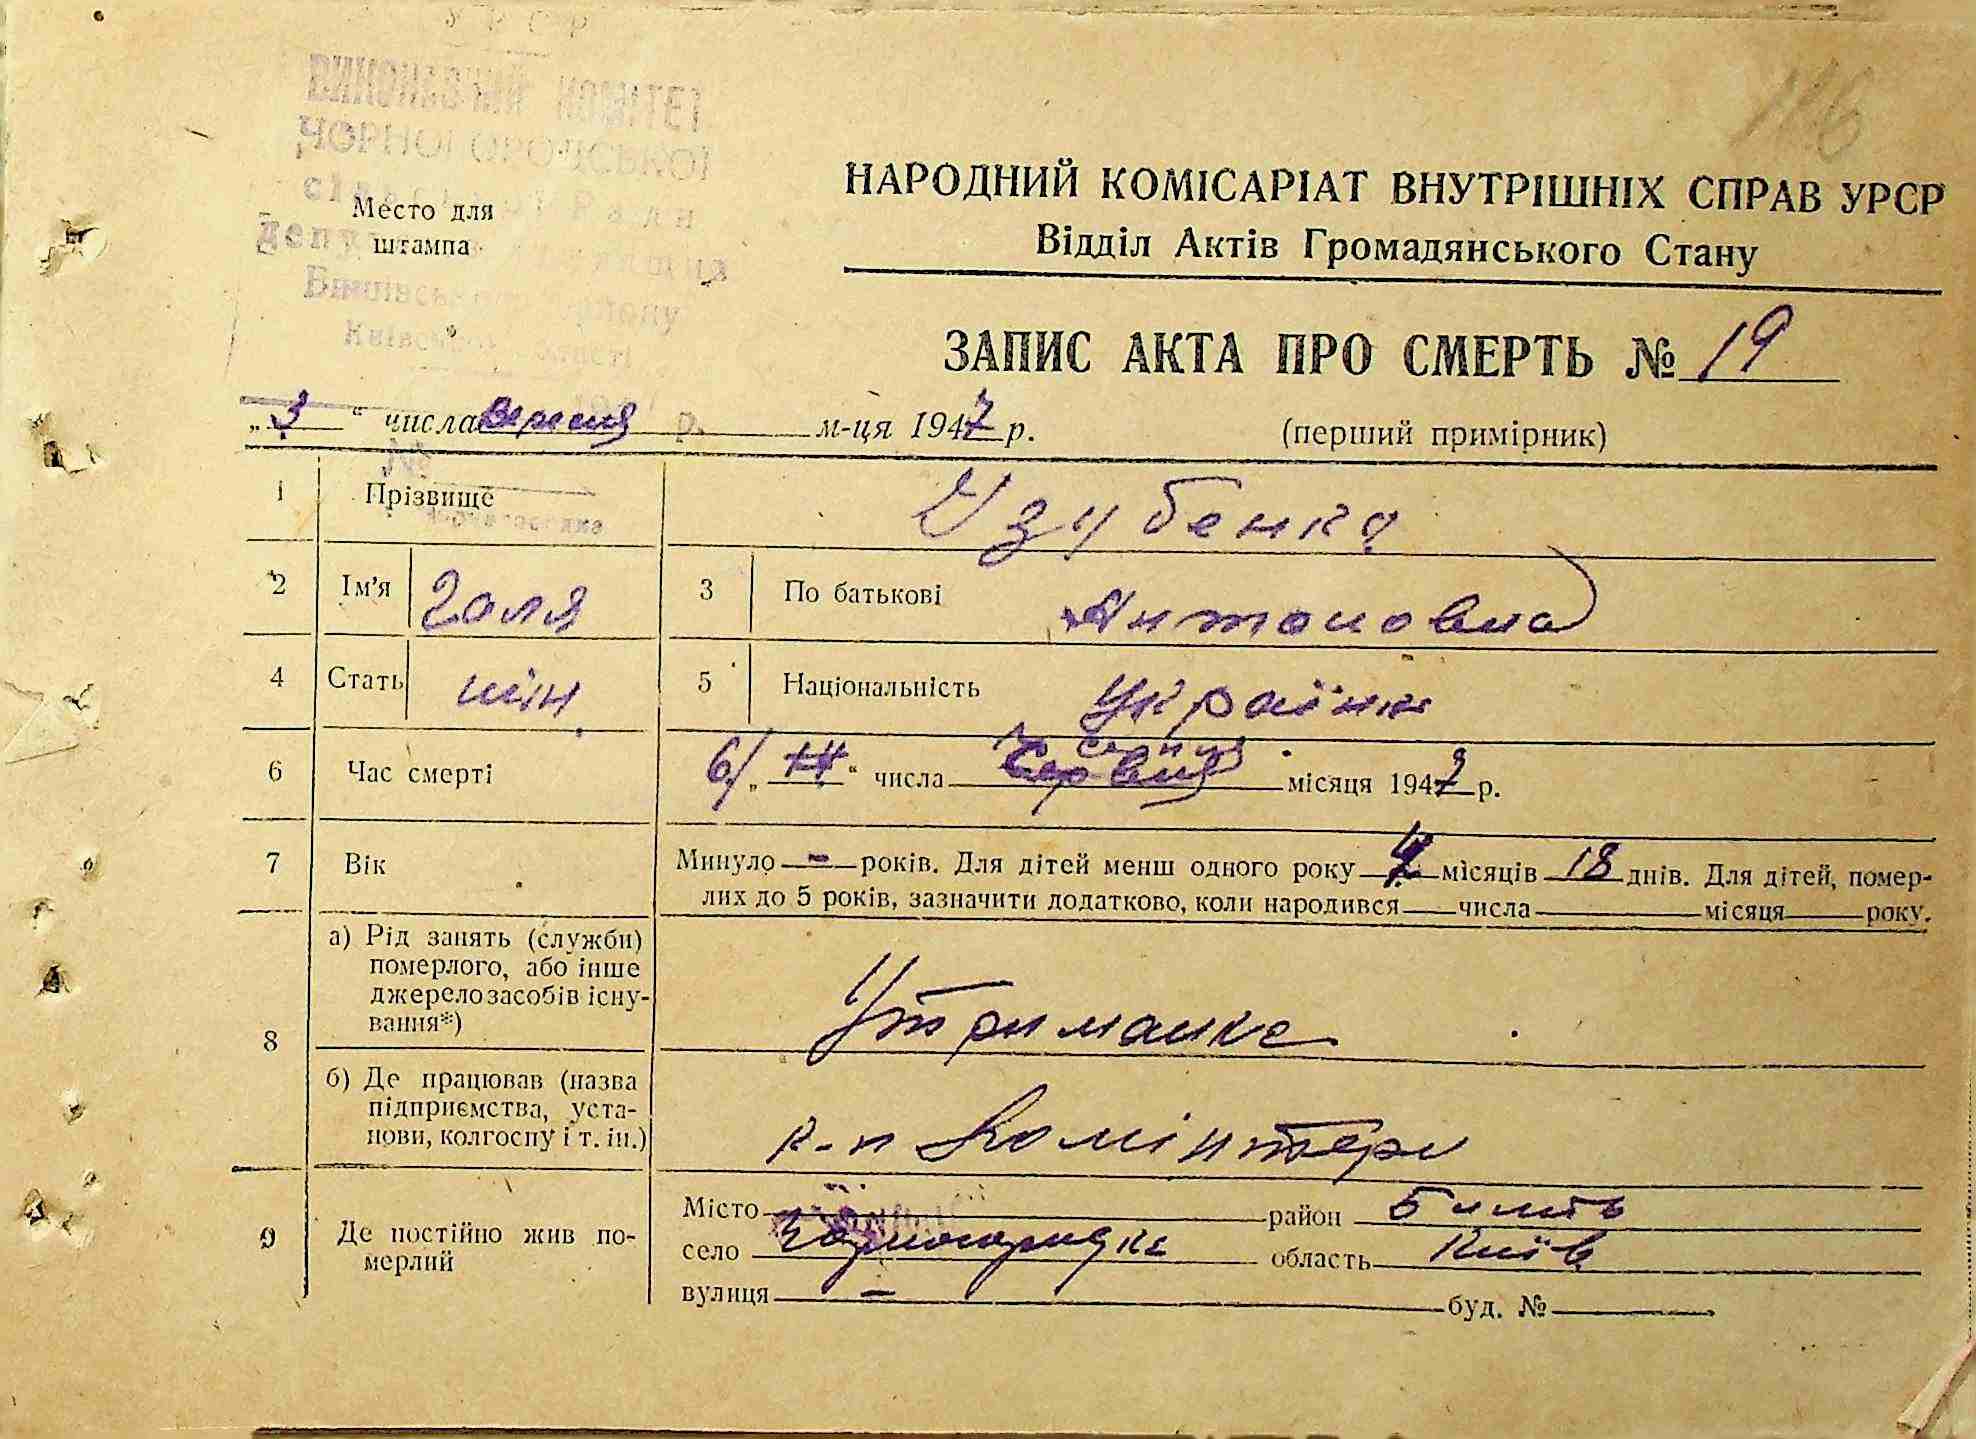 УРСР
ВИКОНАВЧИЙ КОМІТЕТ
ЧОРНОГОРОДСЬКОЇ
сільської Ради
Депутатів Трудящих
Бишівського району
Київської області
116
Место для
штампа
НАРОДНИЙ КОМІСАРІАТ ВНУТРІШНІХ СПРАВ УРСР
Відділ Актів Громадянського Стану
ЗАПИС АКТА ПРО СМЕРТЬ № 19
„3“ числа вересня р. м-ця 1947 р. (перший примірник)
№
1 Прізвище Узубенко
2 Ім'я Галя 3 По батькові Антоновна
4 Стать жін. 5 Національність Українк
6 Час смерті 6/ „ “ числа Серпня Червня місяця 1947 р.
7 Вік Минуло - років. Для дітей менш одного року 4 місяців 18 днів. Для дітей, помер-
лих до 5 років, зазначити додатково, коли народився числа місяця року.
8 а) Рід занять (служби)
померлого, або інше
джерело засобів існу-
вання*)
Утриманка
б) Де працював (назва
підприємства, уста-
нови, колгоспу і т. ін.)
к-п Комінтерн
9 Де постійно жив по-
мерлий
Місто район Бишів
село Чорногородка область Київ
вулиця — буд. №